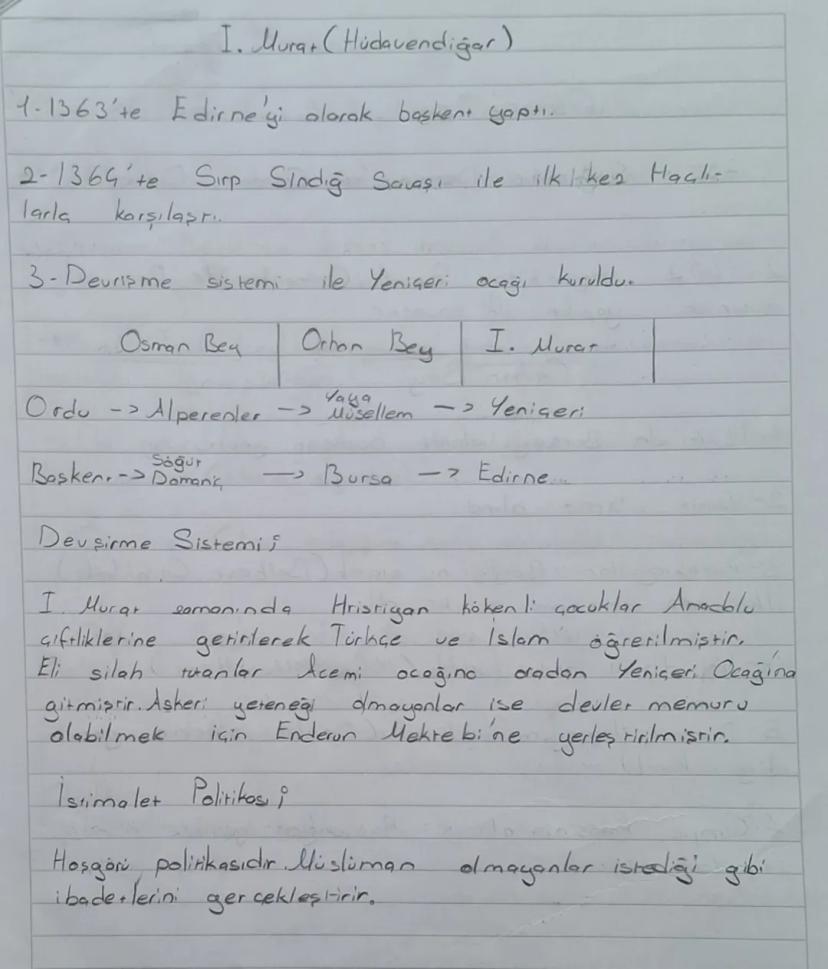 I. Murat (Hüdavendiğar)
1-1363'te Edirne'yi alarak başkent yaptı.
2-1364'te Sırp Sındığ Savaşı ile ilk kez Haçlı-
larla karşılaştı.
3-Devrişme sistemi ile Yeniçeri ocağı kuruldu.
Osman Bey | Orhan Bey | I. Murat
Ordu -> Alperenler -> Yaya Müsellem -> Yeniçeri
Başkent -> Söğüt Domaniç -> Bursa -> Edirne...
Devşirme Sistemi;
I. Murat zamanında Hristiyan kökenli çocuklar Anadolu
çiftliklerine getirilerek Türkçe ve İslam öğretilmiştir.
Eli silah tutanlar Acemi ocağına oradan Yeniçeri Ocağına
gitmiştir. Askeri yeteneği olmayanlar ise devlet memuru
olabilmek için Enderun Mektebi'ne yerleştirilmiştir.
İstimalet Politikası;
Hoşgörü politikasıdır. Müslüman olmayanlar istediği gibi
ibadetlerini gerçekleştirir.